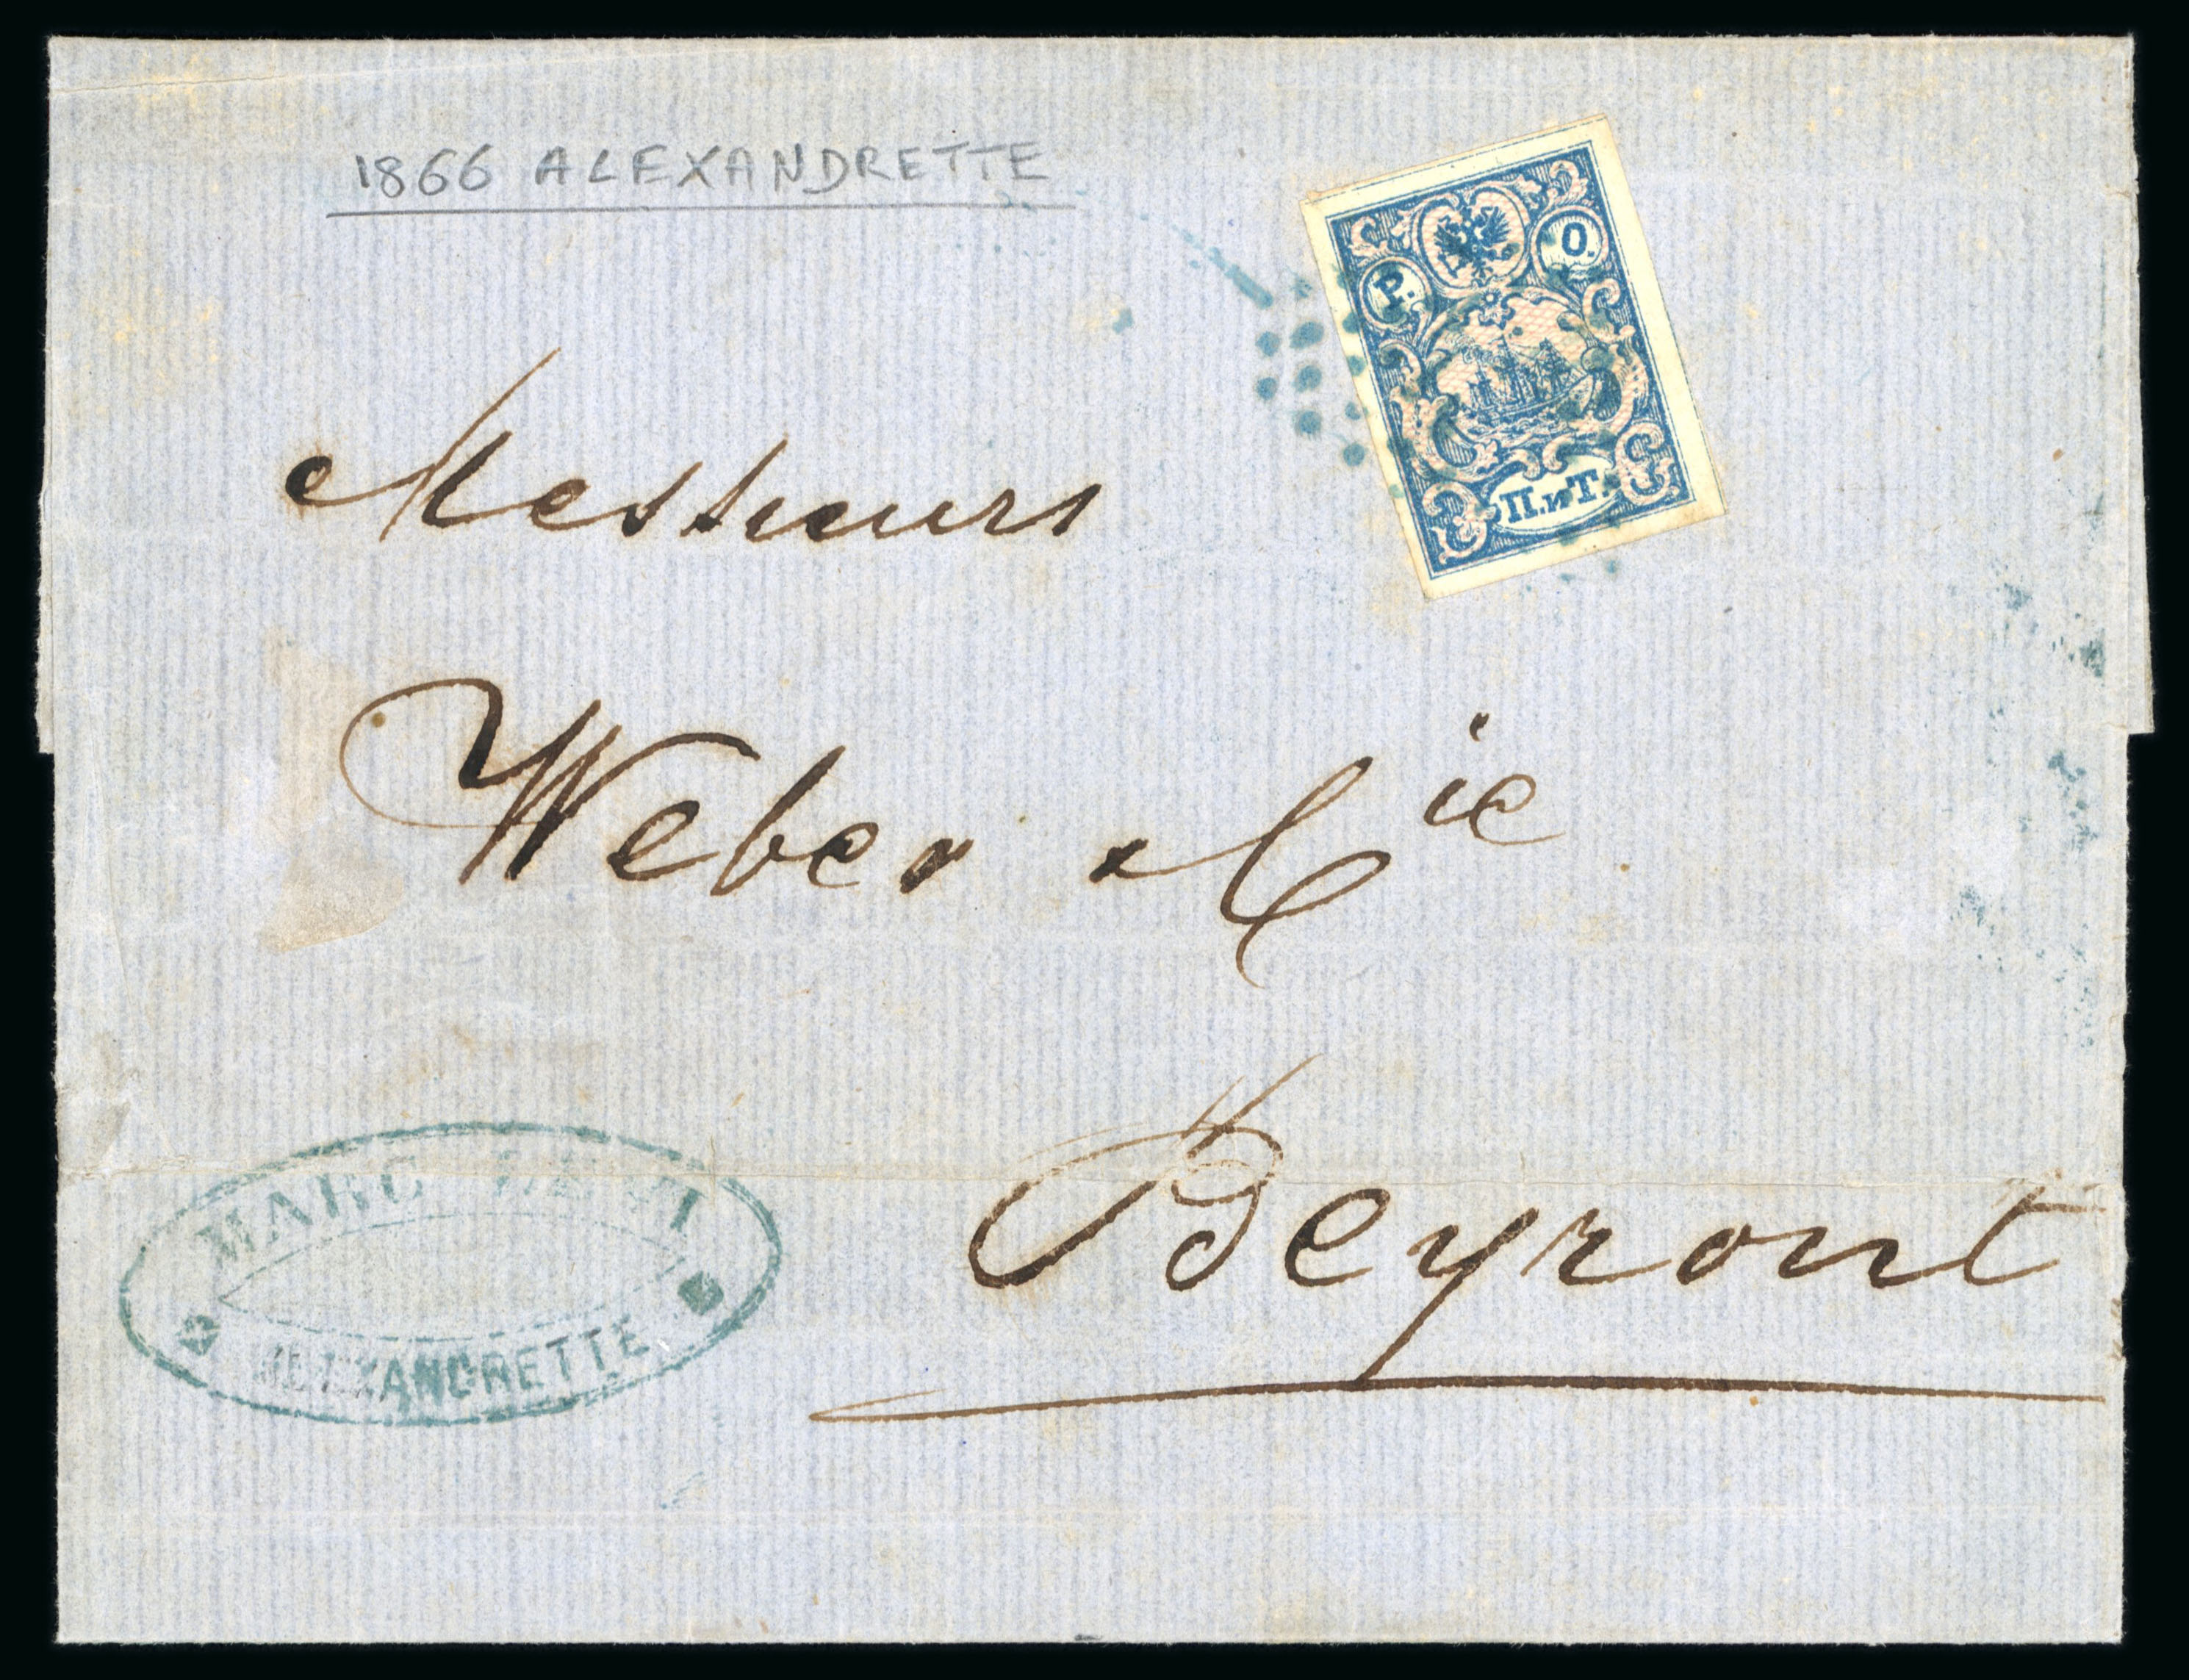 1866 ALEXANDRETTE
P. O.
П.иТ.
Messieurs
Weber & Cie
Beyrout
MARC
ALEXANDRETTE